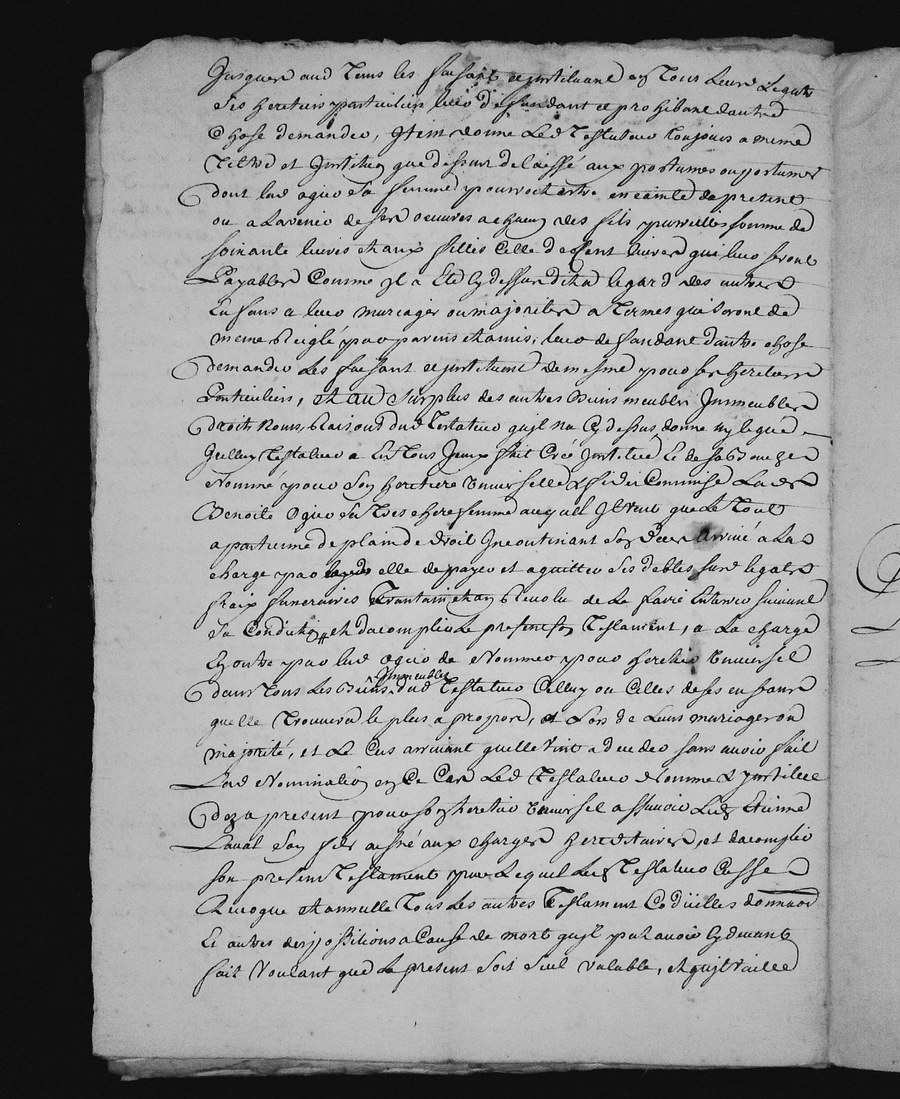 Jusques aud tems les faisant et instituant en tous leurs Legats
ses heretiers particuliers leur deffandant et prohibant dautre
Chose demander, Item donne Led Testateur toujours a meme
Tiltre et Institution que dessus delaissé aux postumes ou postume
dont lad ogier sa femme pourroit estre enceinte de present
ou a Lavenir de ses oeuvres a chacun des fils pareilles somme de
soixante livres et aux filles Celle de Cent livres qui leur seront
Payables Comme Il a Eté Cy dessus dit a legard des autres
Enfans a leur mariages ou majorites a Termes qui seront de
meme Reiglé par parens et amis, leur deffandant dautre chose
demander Les faisant et instituent de mesme pour ses heretiers
Particuliers, et au surplus des autres Biens meubles Immeubles
droits Noms, Raisons dud Testateur quil na Cy dessus donne ny legué
Icelluy Testateur a En Tous Iceux fait Creé Institué Et de sa Bouche
Nommé pour son heretiere universelle et fidei Commise Lad
Benoite ogier sa Tres chere femme auquel Il veut que Le Tout
apartienne de plain de droit Incontinant son deces arrivé a La
charge par elle de payer et aquitter ses debtes susd legats
fraix funeraires Trantain et an Revolu de La faire Enterrer suivant
sa Condition et dacomplir Le present Testament, a La charge
En outre par lad ogier de Nommer pour heretier universel
dans Tous Les Biens Immeubles dud Testateur Celluy ou Celles de ses enfans
quelle Trouvera le plus a propos, et Lors de Leurs mariages ou
majorité, et Le Cas arrivant quelle vint a deceder sans avoir fait
Lad Nomination en Ce Cas Led Testateur Nomme et Institue
deza present pour son heretier universel a sçavoir Led Etienne
Laval son fils aisné aux charges hereditaires, et dacomplir
son present Testament par Lequel Led Testateur Casse
Revoque et annulle Tous Les autres Testament Codicilles donnaons
Et autres dispositions a Cause de mort quil peut avoir Cy devant
fait voulant que Le present soit seul valable, et quil vaille